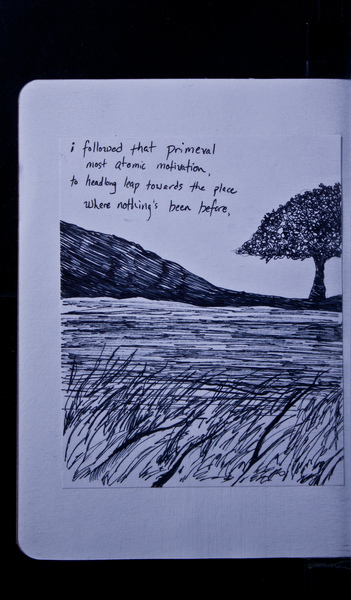 i followed that primeval
most atomic motivation,
to headlong leap towards the place
where nothing's been before,